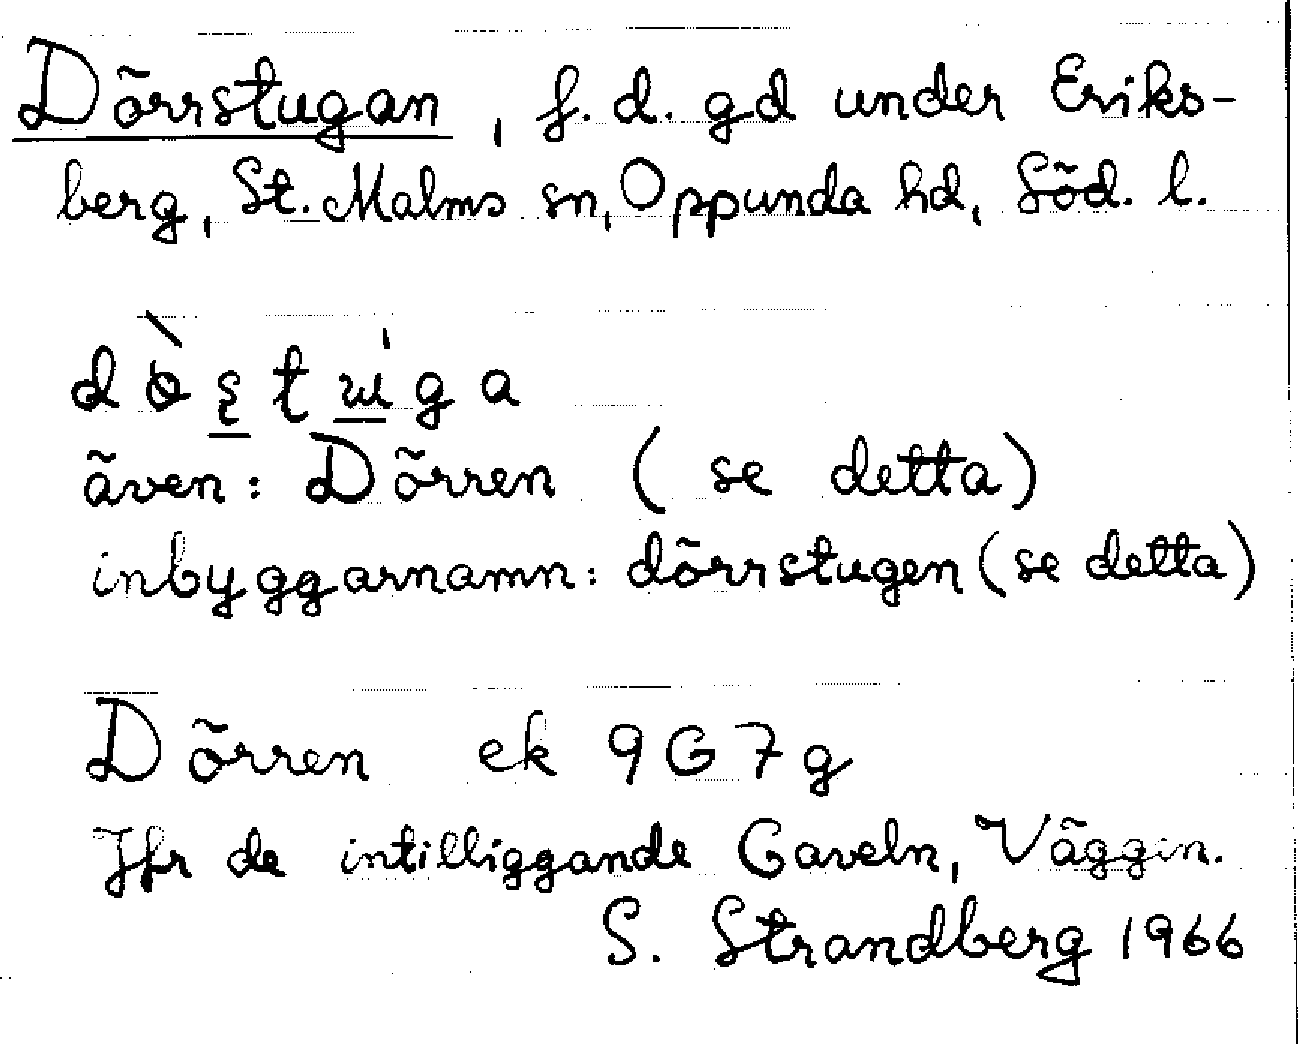 Dörrstugan, f.d. gd under Eriks-
berg, St. Malms sn, Oppunda hd, Söd. l.
även: Dörren (se detta)
inbyggarnamn: dörrstugen (se detta)
Dörren ek 9G7g
Jfr de intilliggande Gaveln, Väggin.
S. Strandberg 1966